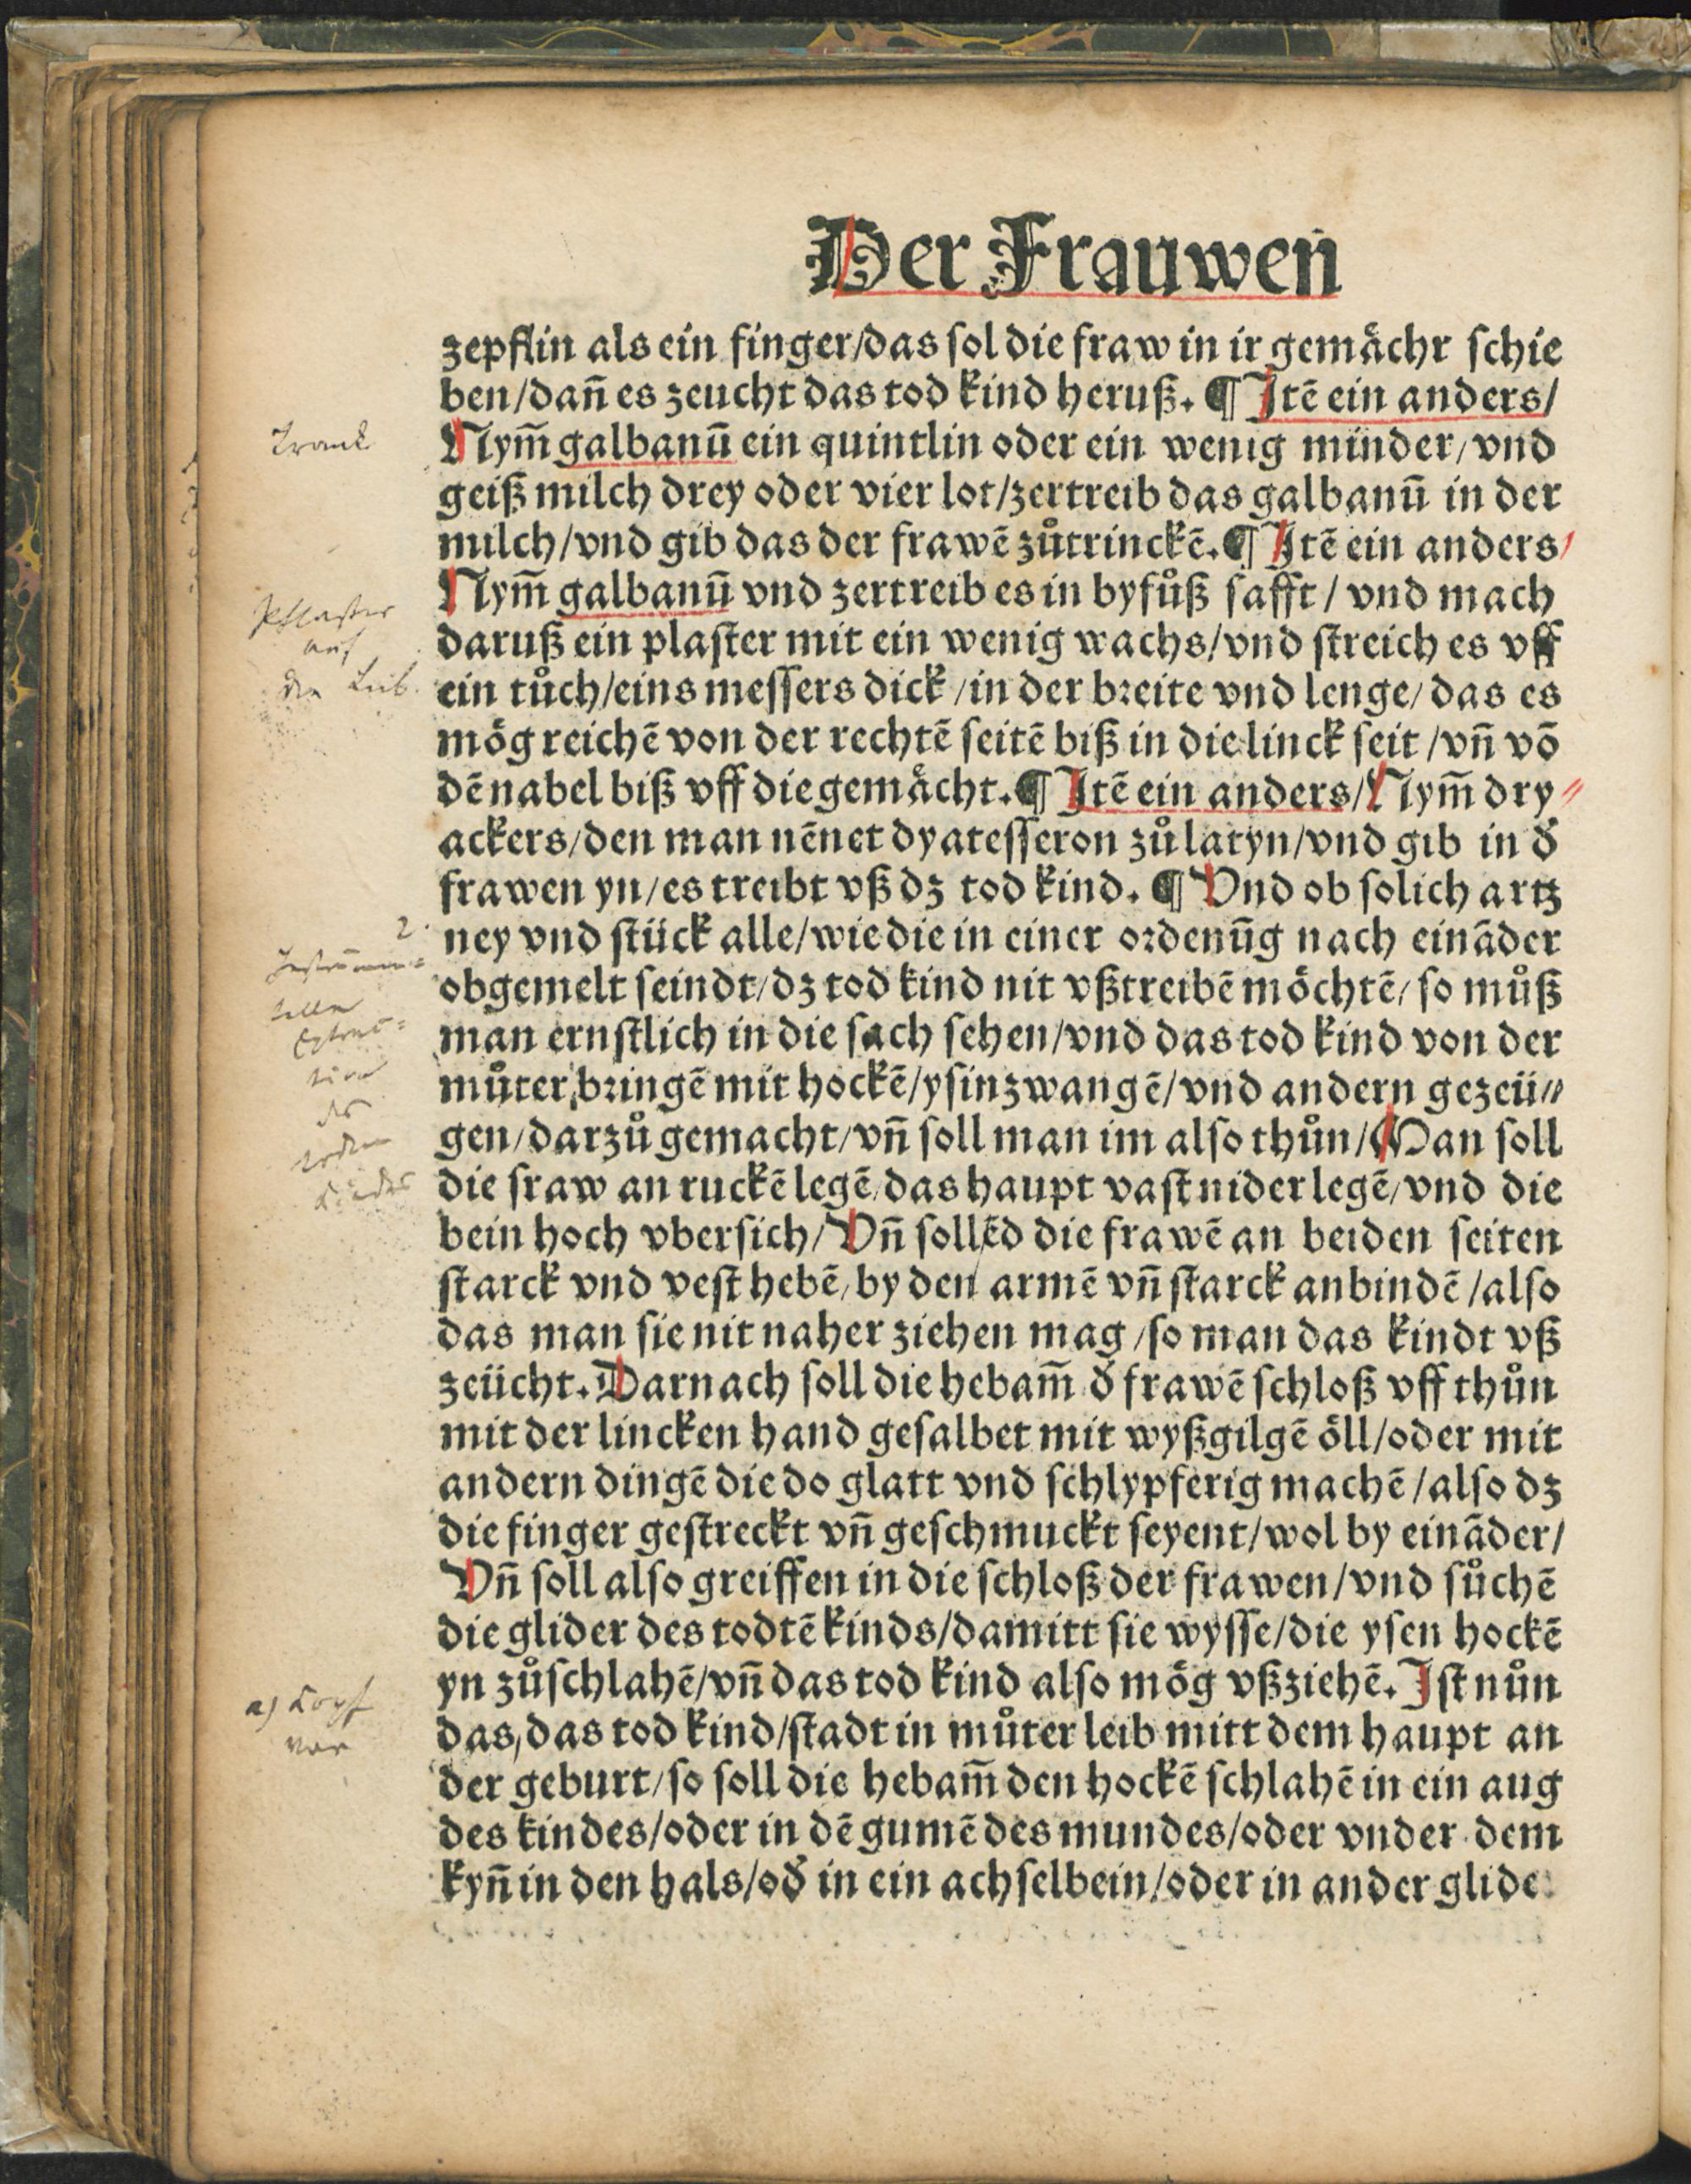 Der Frauwen
zepflin als ein finger/das sol die fraw in ir gemaͤchr schie
ben/dañ es zeucht das tod kind heruß. ¶ Itē ein anders/
Trank
Nym̄ galbanū ein quintlin oder ein wenig minder/vnd
geiß milch drey oder vier lot/zertreib das galbanū in der
milch/vnd gib das der frawē zůtrinckē. ¶ Itē ein anders/
Nym̄ galbanū vnd zertreib es in byfůß safft / vnd mach
Pflaster
auf
den Leib.
daruß ein plaster mit ein wenig wachs/vnd streich es vff
ein tůch/eins messers dick /in der breite vnd lenge/das es
moͤg reichē von der rechtē seitē biß in die linck seit /vñ vō
dē nabel biß vff die gemaͤcht. ¶ Itē ein anders/Nym̄ dry〃
ackers/den man nēnet dyatesseron zů latyn/vnd gib in đ
frawen yn/es treibt vß dz tod kind. ¶ Vnd ob solich artz
2.
ney vnd stück alle/wie die in einer ordenūg nach eināder
obgemelt seindt/dz tod kind nit vßtreibē moͤchtē/so můß
man ernstlich in die sach sehen/vnd das tod kind von der
der
Kindes
můter bringē mit hockē/ysinzwangē/vnd andern gezeü〃
gen/darzů gemacht/vñ soll man im also thůn/Man soll
die sraw an ruckē legē/das haupt vast nider legē/vnd die
bein hoch vbersich/Vñ sollēd die frawē an beiden seiten
starck vnd vest hebē/by den armē vñ starck anbindē /also
das man sie nit naher ziehen mag /so man das kindt vß
zeücht. Darnach soll die hebam̄ đ frawē schloß vff thůn
mit der lincken hand gesalbet mit wyßgilgē oͤll/oder mit
andern dingē die do glatt vnd schlypferig machē /also dz
die finger gestreckt vñ geschmuckt seyent/wol by eināder/
Vñ soll also greiffen in die schloß der frawen/vnd sůchē
die glider des todtē kinds/damitt sie wysse/die ysen hockē
yn zůschlahē/vñ das tod kind also moͤg vßziehē. Ist nůn
a) Kopf
vor
das/das tod kind/stadt in můter leib mitt dem haupt an
der geburt/so soll die hebam̄ den hockē schlahē in ein aug
des kindes/oder in dē gumē des mundes/oder vnder dem
kyñ in den hals/ođ in ein achselbein/oder in ander glide